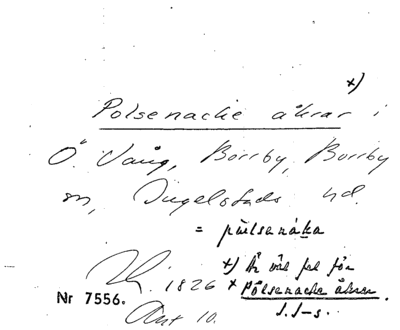 x)
Polsenacke åkrar i
Ö. Vång, Borrby, Borrby
sn, Ingelstads hd.
= pülsenáka
x) Är väl fel för
1826 * Pölsenacke åkrar.
Nr 7556.
Akt 10. J.J-s.